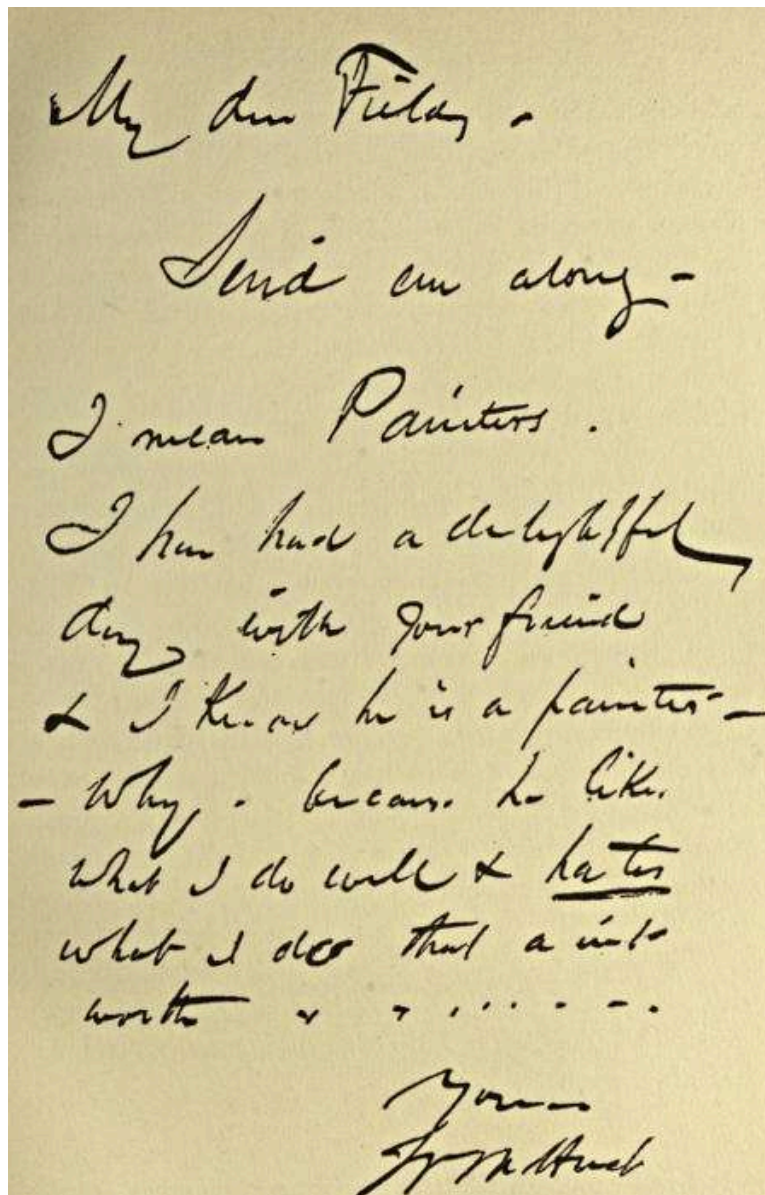 My dear Fields -
Send em along -
I mean Painters .
I have had a delightful
day with your friend
& I know he is a painter -
- Why - because he likes
what I do well & hates
what I do that aint
worth . . . . . . . .
Yours
Wm M Hunt